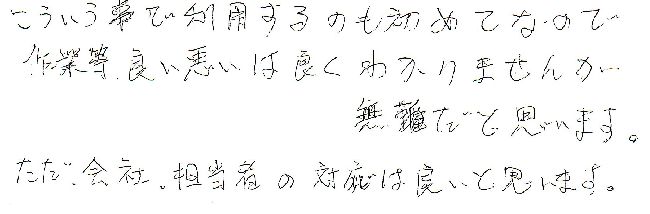 こういう事で利用するのも初めてなので
作業等、良い悪いは良くわかりませんが
無難だと思います。
ただ、会社、担当者の対応は良いと思います。